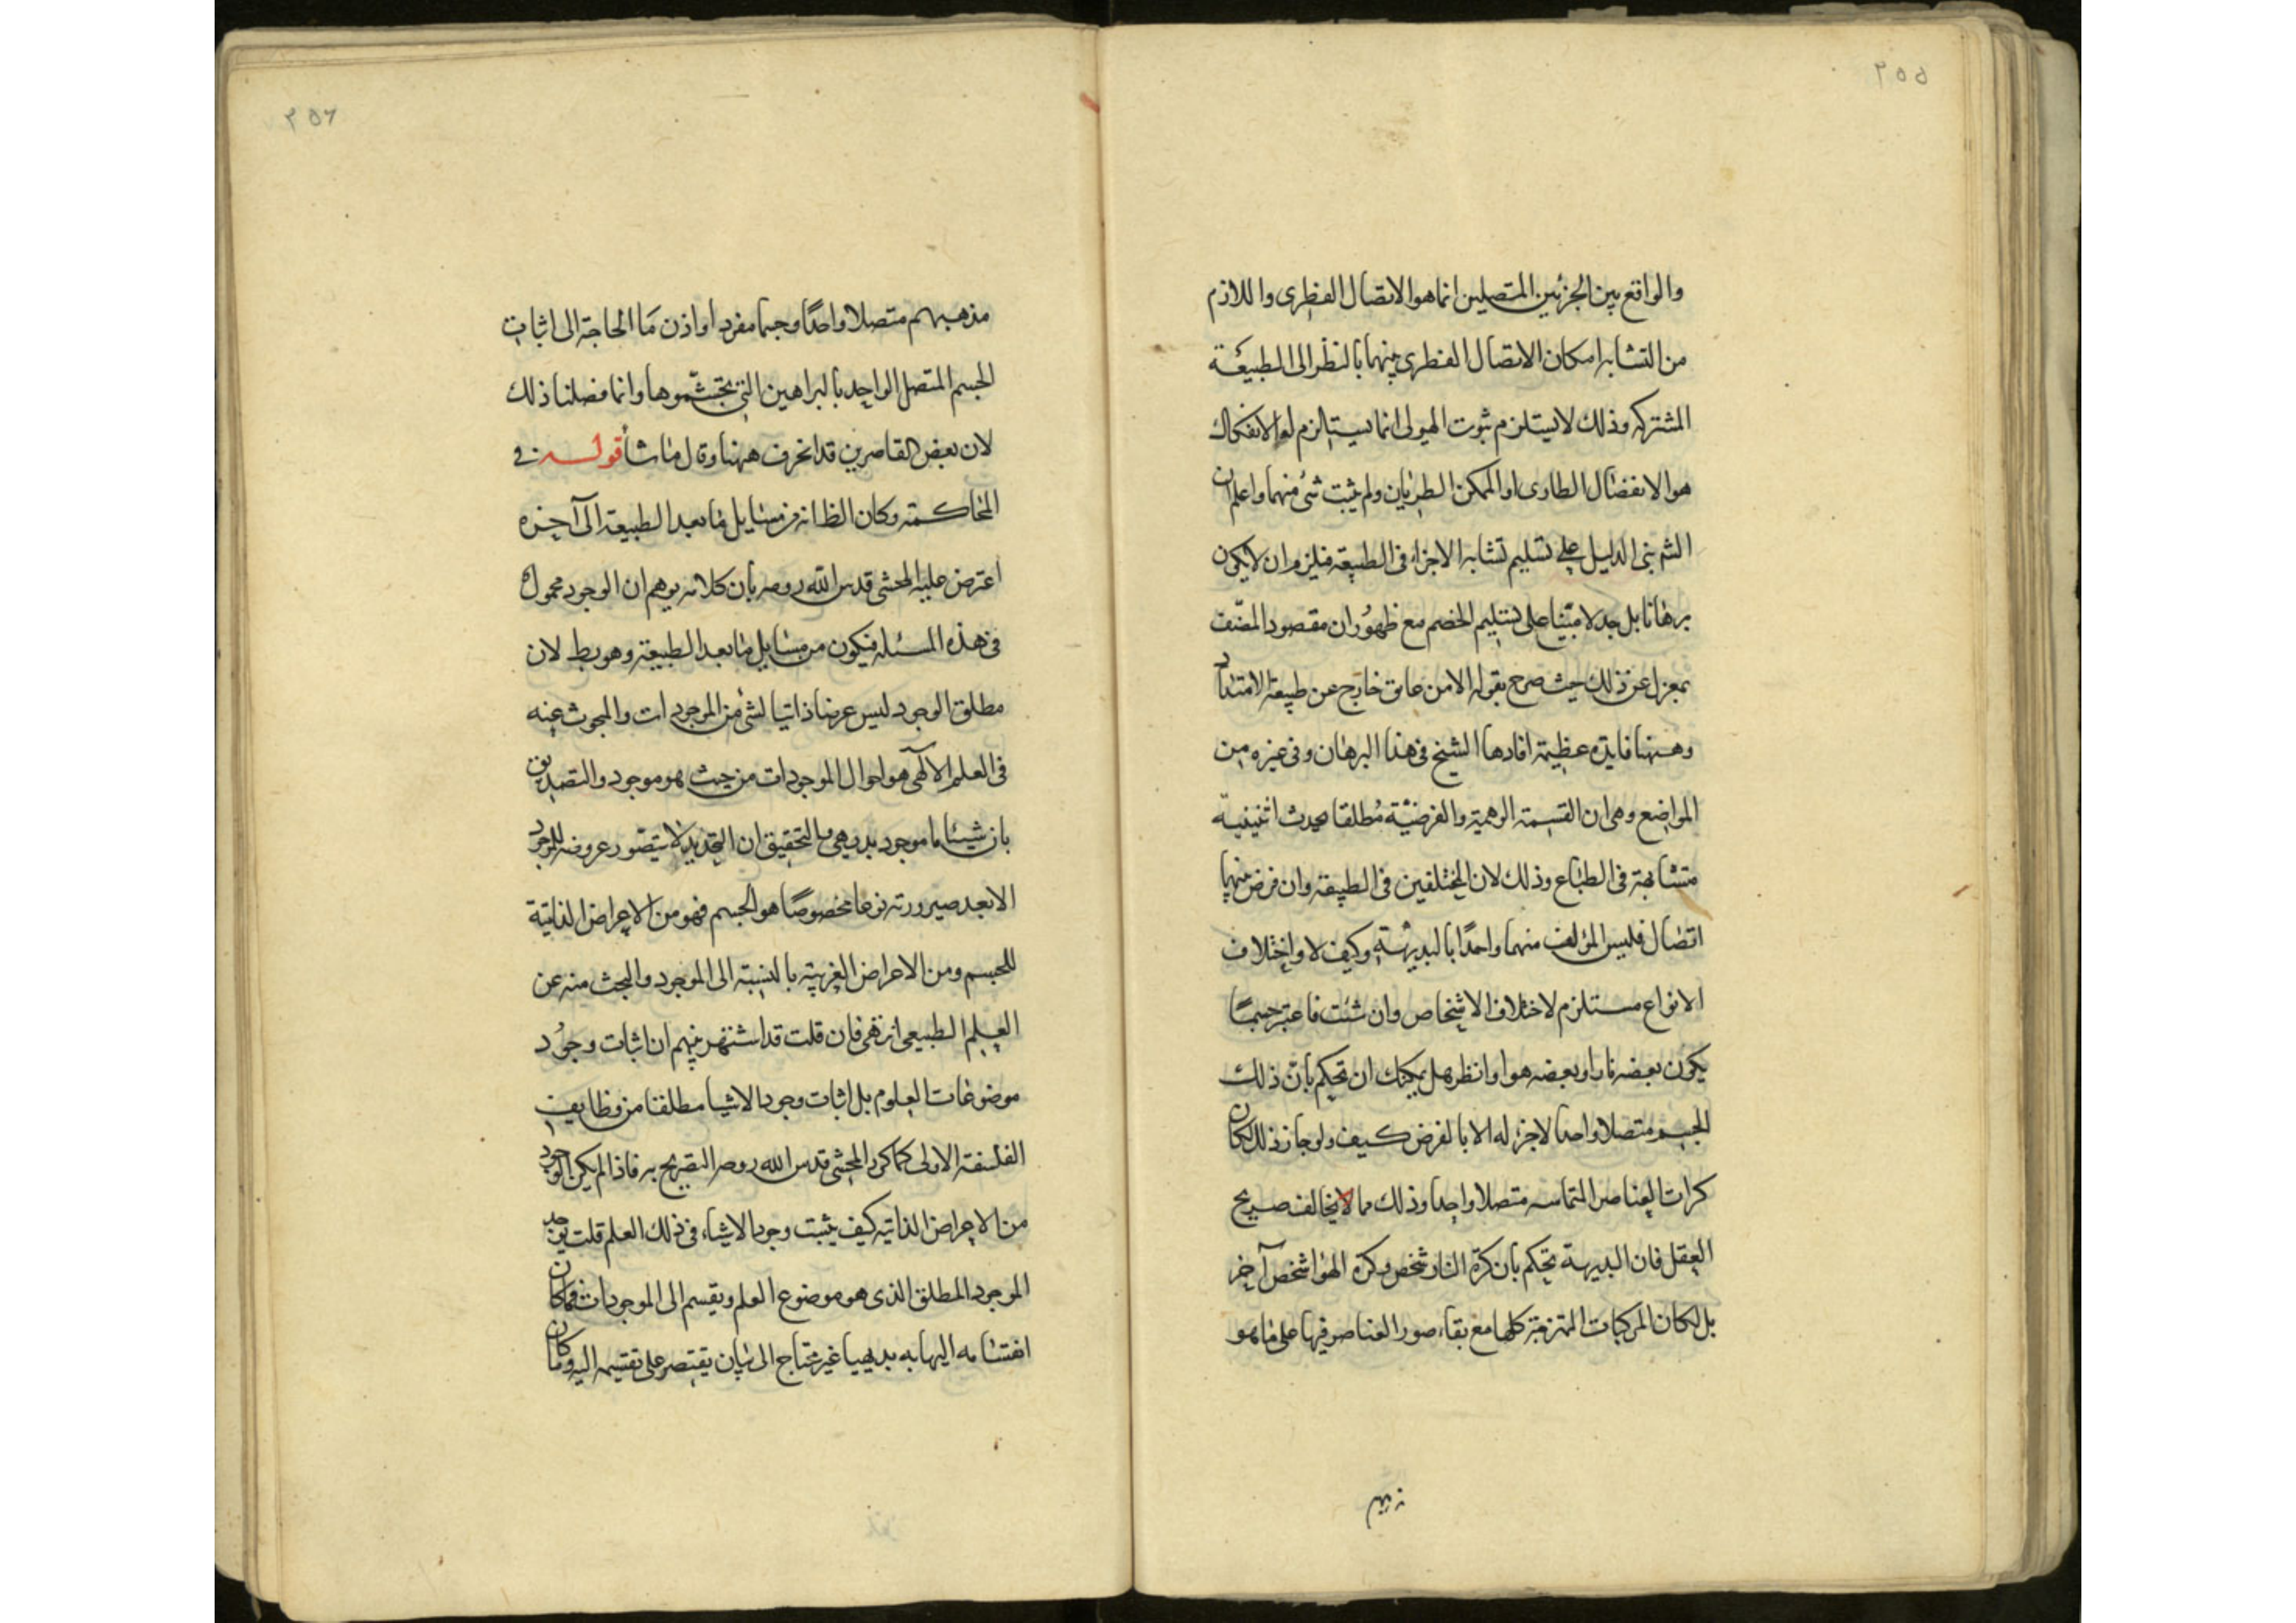 ٢٥٥
والواقع بين الجزئين المتصلين انما هو الاتصال الفطرى واللازم
من التشابه امكان الاتصال الفطرى بينهما بالنظر الى الطبيعة
المشتركه وذلك لا يستلزم ثبوت الهيولى انما يستلزم لو الانفكاك
هو الانفصال الطارى او الممكن الطريان ولم يثبت شئ منهما واعلم ان
الشم بنى الدليل على تسليم تشابه الاجزاء فى الطبيعة فيلزم ان لا يكون
برهانا بل جدلا مبتنيا على تسليم الخصم مع ظهور ان مقصود المصنف
بمعزل عن ذلك حيث صرح بقوله الا من عايق خارج عن طبيعة الامتداد
وههنا فايدة عظيمة افادها الشيخ فى هذا البرهان وفى غيره من
المواضع وهى ان القسمة الوهمية والفرضية مطلقا يحدث اثنينية
متشابهة فى الطباع وذلك لان المختلفين فى الطبيعة وان فرض بينهما
اتصال فليس المؤلف منهما واحدًا بالبديهة وكيف لا واختلاف
الانواع مستلزم لاختلاف الاشخاص وان شئت فاعتبر جسمًا
يكون بعضه نارا وبعضه هوا وانظر هل يمكنك ان تحكم بان ذلك
الجسم متصلا واحدا لا جزء له الا بالفرض كيف ولو جاز ذلك لكان
كرات العناصر المتماسه متصلا واحدا وذلك مما لا يخالف صريح
العقل فان البديهة تحكم بان كرة النار شخص وكرة الهوا شخص آخر
بل لكان المركبات الممتزجة كلها مع بقاء صور العناصر فيها على ما هو
٢٥٦
مذهبهم متصلا واحدًا وجسما مفردا واذن مَا الحاجة الى اثبات
الجسم المتصل الواحد بالبراهين التى تجشّموها وانما فصلنا ذلك
لان بعض القاصرين قد انحرف ههنا وقال ما شأ قوله فى
المحاكمة وكان الظ انه من مسايل ما بعد الطبيعة الى آخره
اعترض عليه المحشى قدس الله روحه بان كلامه يوهم ان الوجود محمول
فى هذه المسئله فيكون من مسايل ما بعد الطبيعة وهو بط لان
مطلق الوجود ليس عرضا ذاتيا لشئ من الموجودات والمبحوث عنه
فى العلم الآلهى هو احوال الموجودات من حيث هو موجود والتصديق
بان شيئا ما موجود بديهى بالتحقيق ان التحديد لا يتصور عروضه للموجود
الا بعد صيرورته نوعا مخصوصًا هو الجسم فهو من الاعراض الذاتية
للجسم ومن الاعراض الغريبة بالنسبة الى الموجود والبحث منه عن
العلم الطبيعى انتهى فان قلت قد اشتهر بينهم ان اثبات وجود
موضوعات العلوم بل اثبات وجود الاشيا مطلقا من وظايف
الفلسفة الاولى كما كرر المحشى قدس الله روحه التصريح به فاذا لم يكن الوجود
من الاعراض الذاتيه كيف يثبت وجود الاشياء فى ذلك العلم قلت يوخذ
الموجود المطلق الذى هو موضوع العلم ويقسم الى الموجودات فما كان
انقسامه اليها به بديهيا غير محتاج الى بيان يقتصر على تقسيمه اليه وما كان